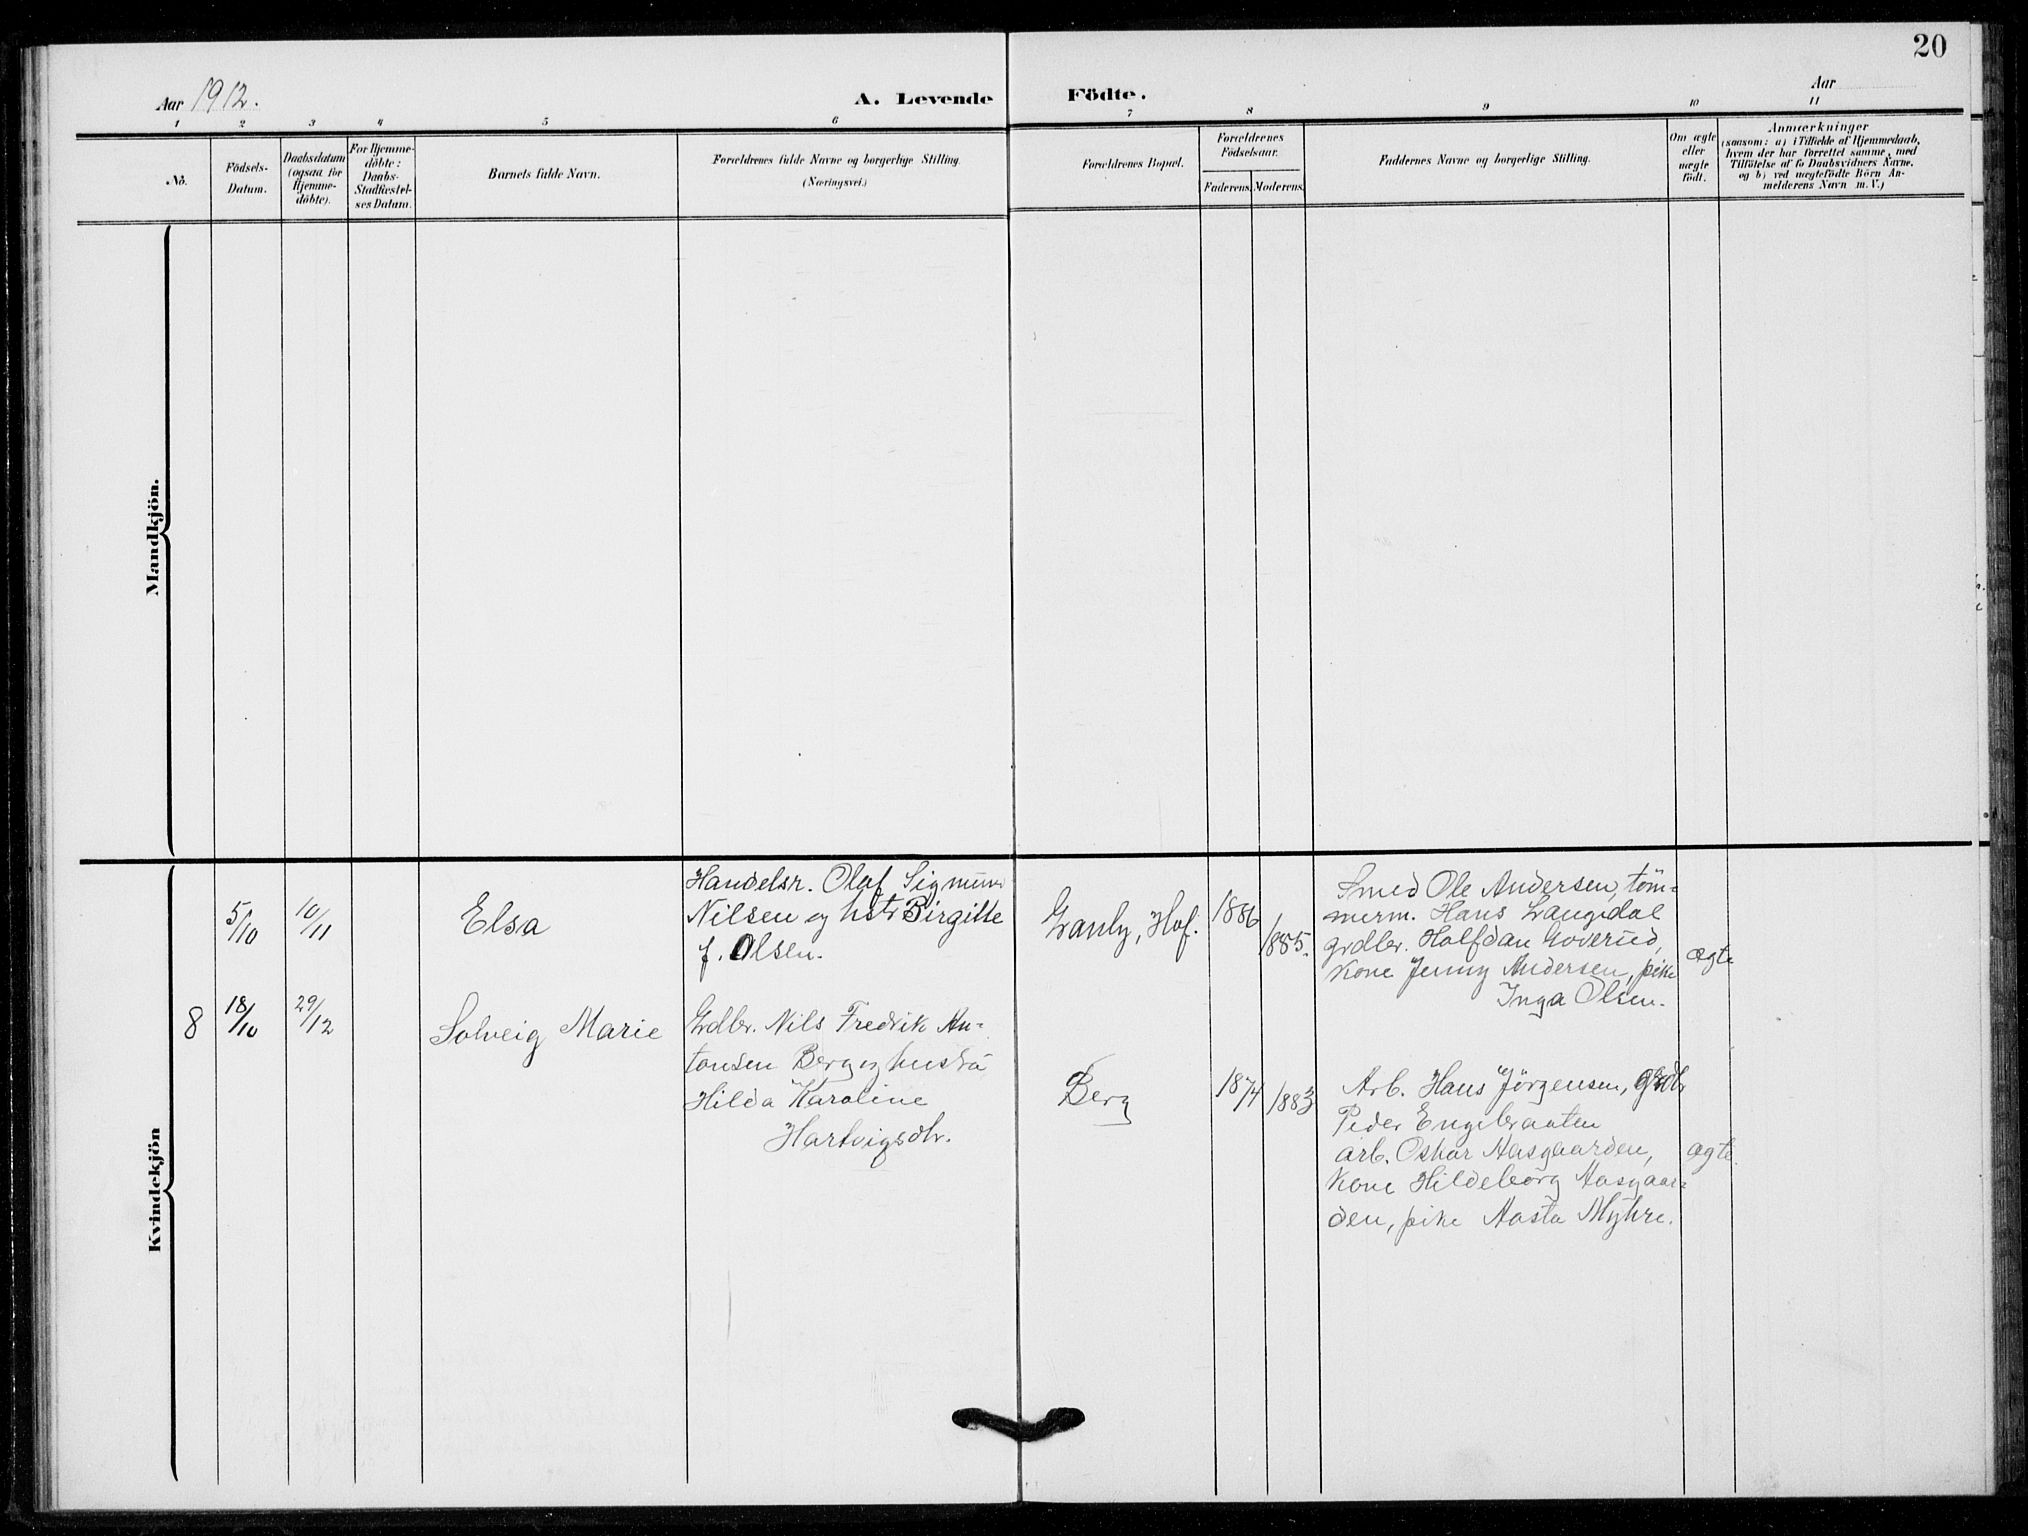 20
Aar 1912.
A. Levende
Födte.
Aar
1
2
3
4
5
6
7
8
9
10
11
No.
Födsels-
Datum.
Daabsdatum
(ogsaa for
Hjemme-
döbte).
For Hjemme-
döbte:
Daabs-
Stadfæstel-
ses Datum.
Barnets fulde Navn.
Forældrenes fulde Navne og borgerlige Stilling.
(Næringsvei.)
Forældrenes Bopæl.
Forældrenes
Födselsaar.
Faderens.
Moderens.
Faddernes Navne og borgerlige Stilling.
Om ægte
eller
uægte
födt.
Anmærkninger
(saasom: a) i Tilfælde af Hjemmedaab,
hvem der har forrettet samme, med
Tilföielse af to Daabsvidners Navne,
og b) ved uægtefödte Börn An-
melderens Navn m. V.)
Mandkjön.
Kvindekjön
5/10
10/11
Elsa
Handelsr. Olaf Sigmund
Nilsen og hstr Birgitte
f. Olsen.
Granly, Hof.
1886
1885.
Smed Ole Andersen, töm-
merm. Hans Langedal
grdbr. Halfdan Goverud,
Kone Jenny Andersen, pike
Inga Olsen.
ægte
8
18/10
29/12
Solveig Marie
Grdbr. Nils Fredrik An-
tonsen Berg og hustru
Hilda Karoline
Hartvigsdtr.
Berg
1874
1883
Arb. Hans Jørgensen, grdb
Peder Engebraaten
arb. Oskar Aasgaarden,
Kone Hildeborg Aasgaar-
den, pike Aasta Myhre.
ægte.